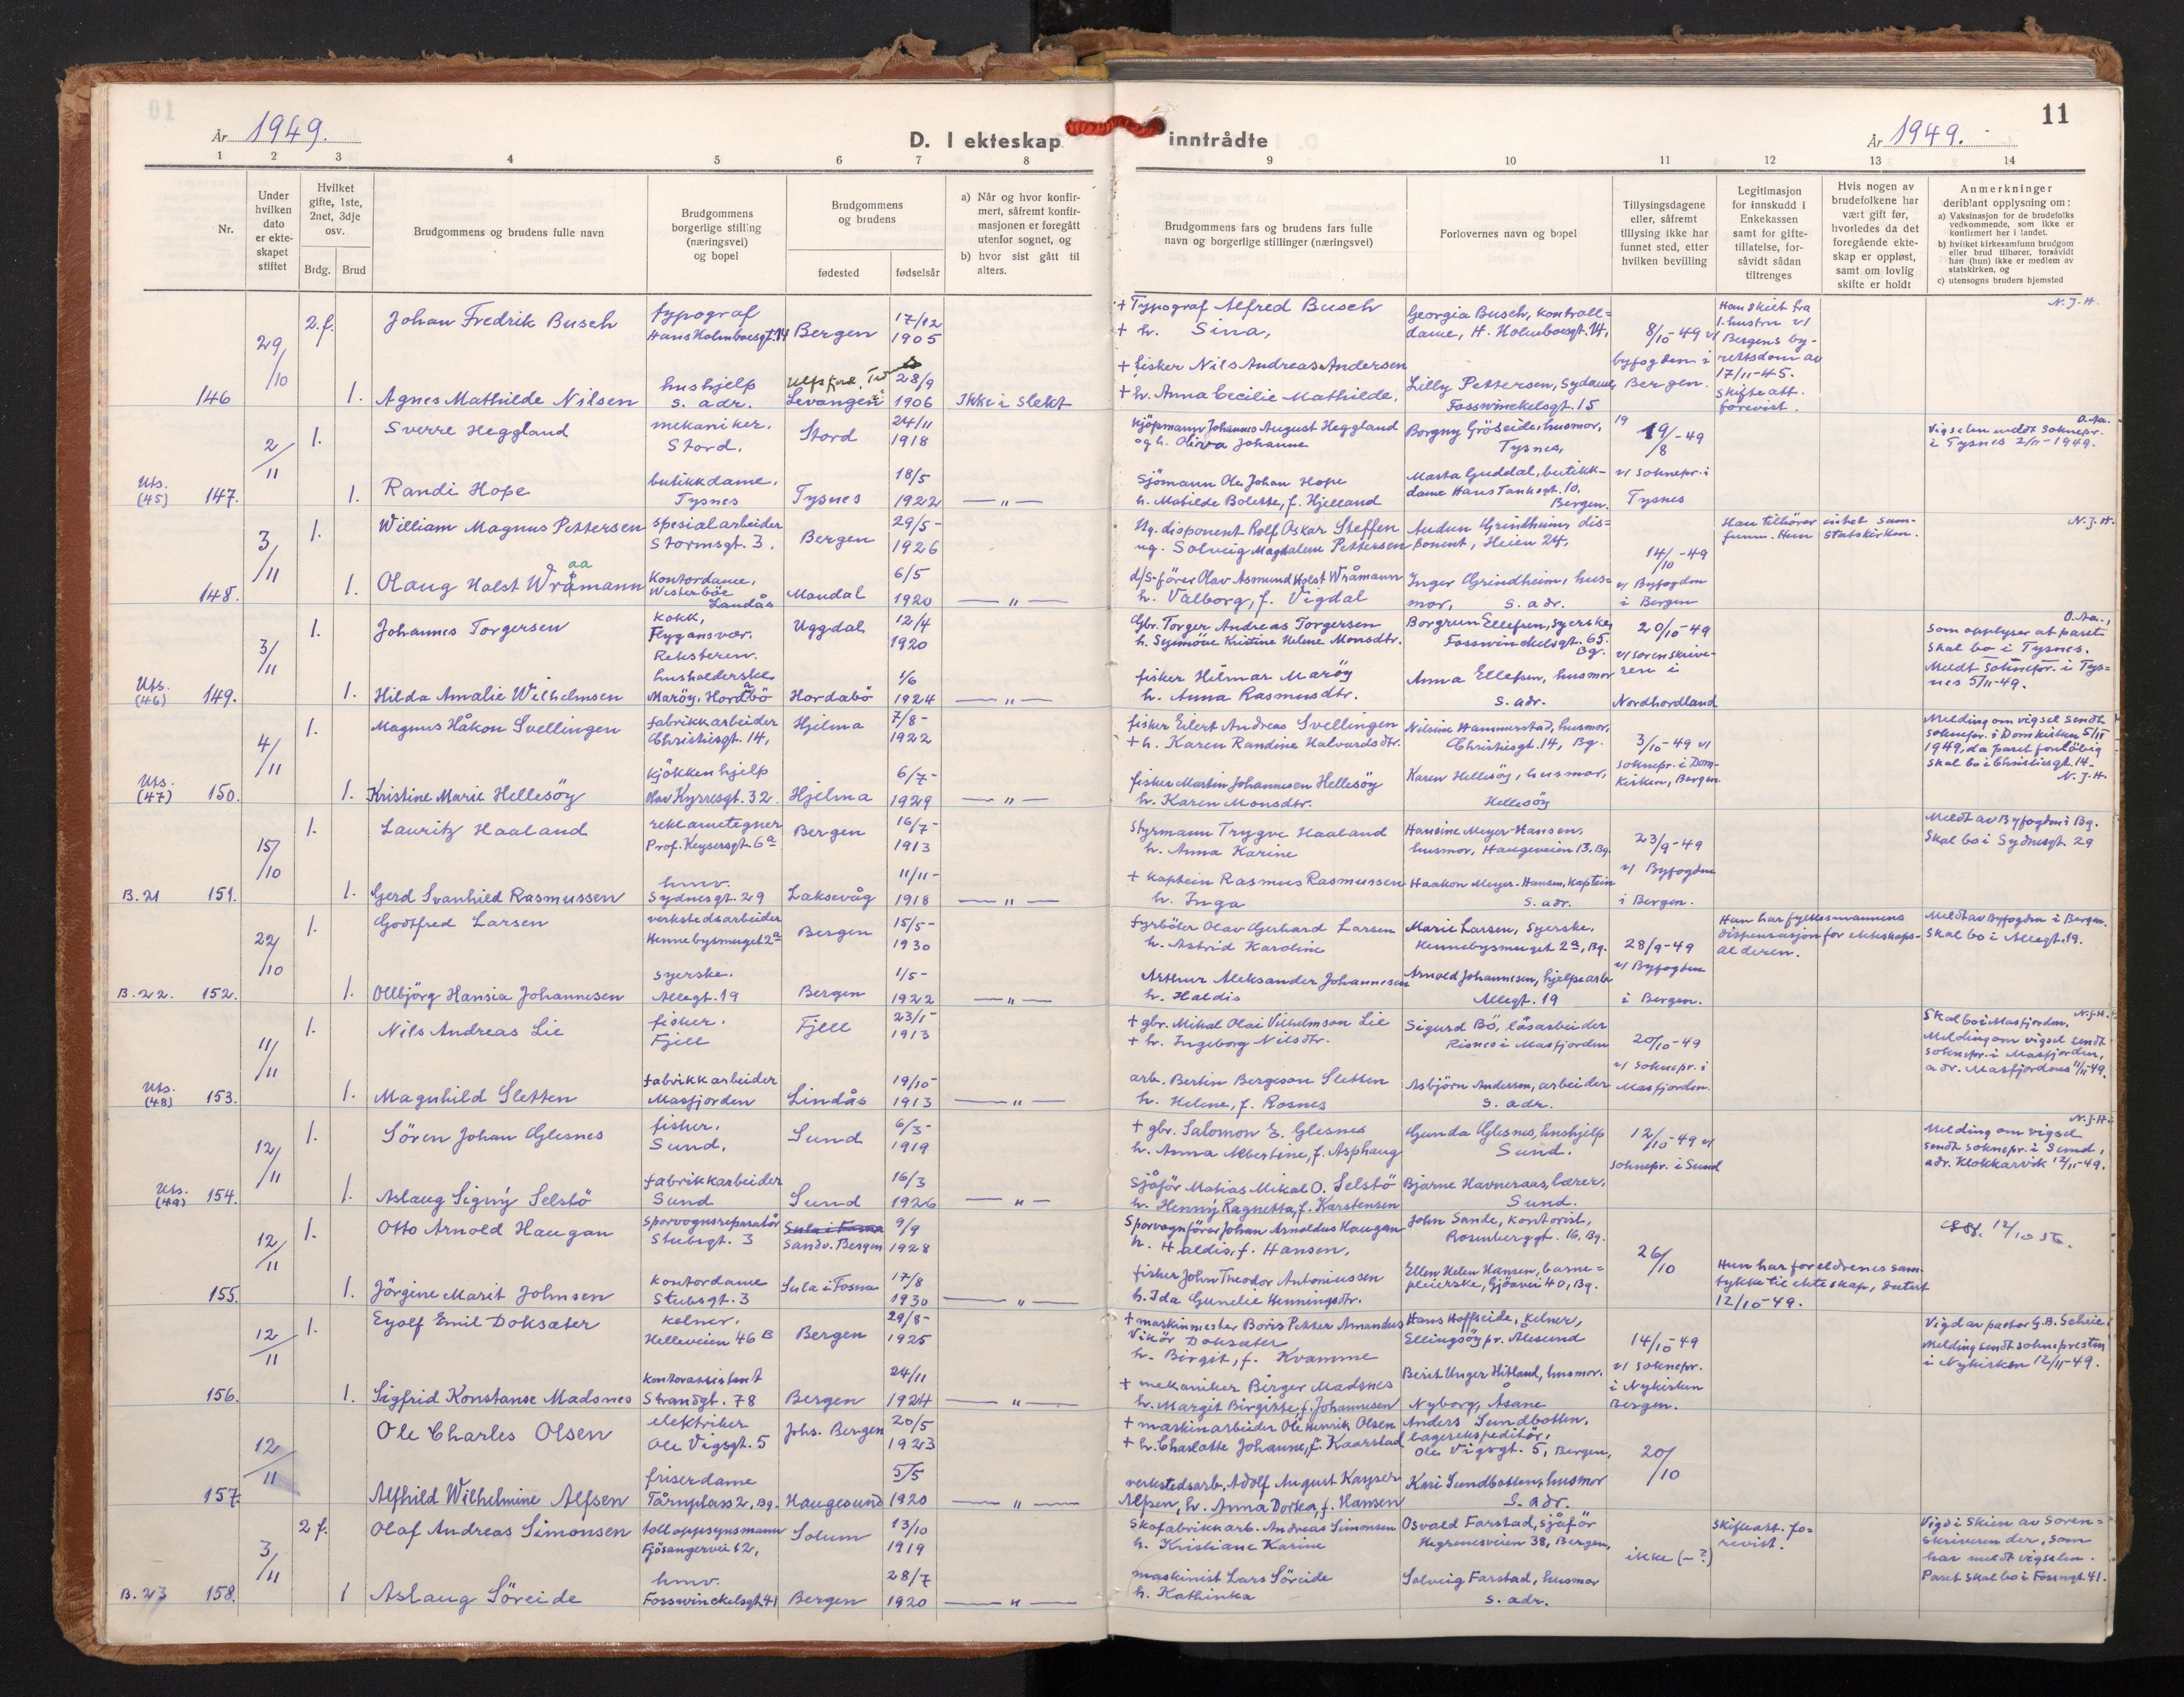 11
År 1949.
D. I ekteskap inntrådte
År 1949.
1 2 3 4 5 6 7 8 9 10 11 12 13 14
Nr.
Under hvilken dato er ekte-skapet stiftet
Hvilket gifte, 1ste, 2net, 3dje osv.
Brdg. Brud
Brudgommens og brudens fulle navn
Brudgommens borgerlige stilling (næringsvei) og bopel
Brudgommens og brudens
fødested fødselsår
a) Når og hvor konfir-mert, såfremt konfir-masjonen er foregått utenfor sognet, og
b) hvor sist gått til alters.
Brudgommens fars og brudens fars fulle navn og borgerlige stillinger (næringsvei)
Forlovernes navn og bopel
Tillysingsdagene eller, såfremt tillysing ikke har funnet sted, etter hvilken bevilling
Legitimasjon for innskudd i Enkekassen samt for gifte-tillatelse, for-såvidt sådan tiltrenges
Hvis nogen av brudefolkene har vært gift før, hvorledes da det foregående ekte-skap er oppløst, samt om lovlig skifte er holdt
Anmerkninger deriblant opplysning om:
a) Vaksinasjon for de brudefolks vedkommende, som ikke er konfirmert her i landet.
b) hvilket kirkesamfunn brudgom eller brud tilhører, forsåvidt han (hun) ikke er medlem av statskirken, og
c) utensogns bruders hjemsted
146 29/10 2.f. Johan Fredrik Busch typograf Hans Holmboesgt. 14 Bergen 17/12 1905
+ Typograf Alfred Busch + h. Sina, Georgia Busch, kontroll=dame, H. Holmboesgt. 14, 8/10-49 v/ byfogden i Bergen.
Han skilt fra 1. hustru v/ Bergens by-rettsdom av 17/11-45. Skifteatt. forevist. N.J.H.
1. Agnes Mathilde Nilsen hushjelp s. adr. Levangen 28/9 1906 Ikke i slekt
+ fisker Nils Andreas Andersen + h. Anna Cecilie Mathilde, Lilly Pettersen, Sydame, Fosswinckelsgt. 15
Uts. (45) 147. 2/11 1. Sverre Heggland mekaniker, Stord. Stord 24/11 1918
Kjöpmann Johannes August Heggland og h. Oliva Johanne Borgny Gröseide, husmor, Tysnes, 19 19/8-49 v/ soknepr. i Tysnes
O.Aa. Vigselen meldt soknepr. i Tysnes 2/11-1949.
1. Randi Hope butikkdame, Tysnes Tysnes 18/5 1922 — " —
Sjömann Ole Johan Hope h. Matilde Bolette, f. Hjelland Marta Guddal, butikk-dame Hans Tanksgt. 10, Bergen.
148. 3/11 1. William Magnus Pettersen spesialarbeider Stormsgt. 3. Bergen 29/5- 1926
Ug. disponent Rolf Oskar Steffen ug. Solveig Magdalene Pettersen Audun Grindheim, dis=ponent, Heien 24, 14/10-49 v/ Byfogden i Bergen
Han tilhörer intet sam-funn. Hun statskirken. N.J.H.
1. Olaug Holst Wråmann aa Kontordame, Wisterböe Landås Mandal 6/5 1920 — " —
d/s-förer Olav Asmund Holst Wråmann h. Valborg, f. Vigdal Inger Grindheim, hus=mor, s. adr.
Uts. (46) 149. 3/11 1. Johannes Torgersen kokk, Flygansvær. Reksteren. Uggdal 12/4 1920
Gbr. Torger Andreas Torgersen h. Synnöve Kristine Helene Monsdtr. Borgrun Ellefsen, syerske, Fosswinckelsgt. 65. Bg. 20/10-49 v/ sorenskrive-ren i Nordhordland
O.Aa., som opplyser at paret skal bo i Tysnes. Meldt soknepr. i Tys=nes 5/11-49.
1. Hilda Amalie Wilhelmsen husholderske Maröy, Hordabö Hordabö 1/6 1924 — " —
fisker Hilmar Maröy h. Anna Rasmusdtr. Anna Ellefsen, husmor s. adr.
Uts. (47) 150. 4/11 1. Magnus Håkon Svellingen fabrikkarbeider Christiesgt. 14, Hjelma 7/8- 1922
fisker Eilert Andreas Svellingen + h. Karen Randine Halvardsdtr. Nilsine Hammerstad, husmor, Christiesgt. 14, Bg. 3/10-49 v/ soknepr. i Dom-kirken, Bergen
Melding om vigsel sendt soknepr. i Domkirken 5/11 1949, da paret forelöbig skal bo i Christiesgt. 14- N.J.H.
1. Kristine Marie Hellesöy kjökkenhjelp Olav Kyrresgt. 32. Hjelma 6/7- 1929 — " —
fisker Martin Johannesen Hellesöy h. Karen Monsdtr. Karen Hellesöy, husmor, Hellesöy
B. 21 151. 15/10 1. Lauritz Haaland reklametegner Prof. Keysersgt. 6a Bergen 16/7- 1913
Styrmann Trygve Haaland h. Anna Karine Hansine Meyer-Hansen, husmor, Haugeveien 13, Bg. 23/9-49 v/ Byfogden i Bergen.
Meldt av Byfogden i Bg. Skal bo i Sydnesgt. 29
1. Gerd Svanhild Rasmussen hmv. Sydnesgt. 29 Laksevåg 11/11- 1918 — " —
+ kaptein Rasmus Rasmussen h. Inga Haakon Meyer-Hansen, kaptein s. adr.
B. 22. 152. 22/10 1. Godtfred Larsen verkstedsarbeider Hennebysmuget 2a Bergen 15/5- 1930
fyrböter Olav Gerhard Larsen h. Astrid Karoline Marie Larsen, Syerske, Hennebysmuget 2a, Bg. 28/9-49 v/ Byfogden i Bergen.
Han har fylkesmannens dispensasjon for ekteskaps-alderen. Meldt av Byfogden i Bergen. Skal bo i Allegt. 19.
1. Ollbjörg Hansia Johannesen syerske. Allegt. 19 Bergen 1/5- 1922 — " —
Arthur Aleksander Johannesen h. Haldis Arnold Johannesen, hjelpearb Allegt. 19
Uts. (48) 153. 11/11 1. Nils Andreas Lie fisker. Fjell Fjell 23/1- 1913
+ gbr. Mikal Olai Vilhelmson Lie + h. Ingeborg Nilsdtr. Sigurd Bö, låsarbeider Risnes i Masfjorden 20/10-49 v/ soknepr. i Masfjorden.
Skal bo i Masfjorden. N.J.H. Melding om vigsel sendt soknepr. i Masfjorden, adr. Masfjordnes 11/11-49.
1. Magnhild Sletten fabrikkarbeider Masfjorden Lindås 19/10- 1913 — " —
arb. Bertin Bergeson Sletten h. Helene, f. Rosnes Asbjörn Andersen, arbeider s. adr.
Uts. (49) 154. 12/11 1. Sören Johan Glesnes fisker, Sund. Sund 6/3- 1919
+ gbr. Salomon E. Glesnes h. Anna Albertine, f. Asphaug Gunda Glesnes, hushjelp Sund. 12/10-49 v/ soknepr. i Sund
N.J.H. Melding om vigsel sendt soknepr. i Sund, adr. Klokkarvik 12/11-49.
1. Aslaug Signy Selstö fabrikkarbeider Sund Sund 16/3 1926 — " —
Sjåför Matias Mikal O. Selstö h. Henny Ragnetta, f. Karstensen Bjarne Havneraas, lærer, Sund.
155. 12/11 1. Otto Arnold Haugan Sporvognsreparatör Stubsgt. 3 Sula i Fosna Sandv. Bergen 9/9 1928
Sporvognförer Johan Arnoldus Haugan h. Haldis, f. Hansen, John Sande, kontorist, Rosenberggt. 16, Bg. 26/10
12/10
1. Jörgine Marit Johnsen kontordame Stubsgt. 3 Sula i Fosna 17/8 1930 — " —
fisker John Theodor Antoniussen h. Ida Gunelie Henningsdtr. Ellen Helen Hansen, barne=pleierske, Gjöavei 40, Bg.
Hun har foreldrenes sam-tykke til ekteskap, datert 12/10-49.
156. 12/11 1. Eyolf Emil Doksæter kelner, Helleveien 46B Bergen 29/8- 1925
+ maskinmester Boris Petter Amandus Vikör Doksæter h. Birgit, f. Kvamme Hans Hoffseide, kelner, Ellingsöy pr. Ålesund 14/10-49 v/ soknepr. i Nykirken Bergen.
Vigd av pastor G.B. Scheie. Melding sendt soknepresten i Nykirken 12/11-49.
1. Sigfrid Konstanse Madsnes kontorassistent Strandgt. 78 Bergen 24/11 1924 — " —
+ mekaniker Birger Madsnes h. Margit Birgitte, f. Johannesen Berit Unger Hitland, husmor. Nyborg, Åsane
157. 12/11 Ole Charles Olsen elektriker Ole Vigsgt. 5 Johs. Bergen 20/5 1923
+ maskinarbeider Ole Henrik Olsen + h. Charlotte Johanne, f. Kaarstad Anders Sundbotten, lagerekspeditör, Ole Vigsgt. 5, Bergen, 20/10
Alfhild Wilhelmine Alfsen friserdame Tårnplass 2, Bg. Haugesund 5/5 1920 — " —
verkstedsarb. Adolf August Kayser Alfsen, h. Anna Dortea, f. Hansen Kari Sundbotten, husmor s. adr.
B. 23 158. 3/11 2 f. Olaf Andreas Simonsen tolloppsynsmann Fjösangervei 62, Solum 13/10 1919
Skofabrikkarb. Andreas Simonsen h. Kristiane Karine Osvald Farstad, sjåför Hegrenesveien 38, Bergen, ikke (-?)
Skifteatt. fo=revist. Vigd i Skien av Soren=skriveren der, som har meldt vigselen. Paret skal bo i Fosswgt. 41.
1 Aslaug Söreide hmv. Fosswinckelsgt. 41 Bergen 28/7 1920 — " —
maskinist Lars Söreide h. Kathinka Solveig Farstad, husmor s. adr.